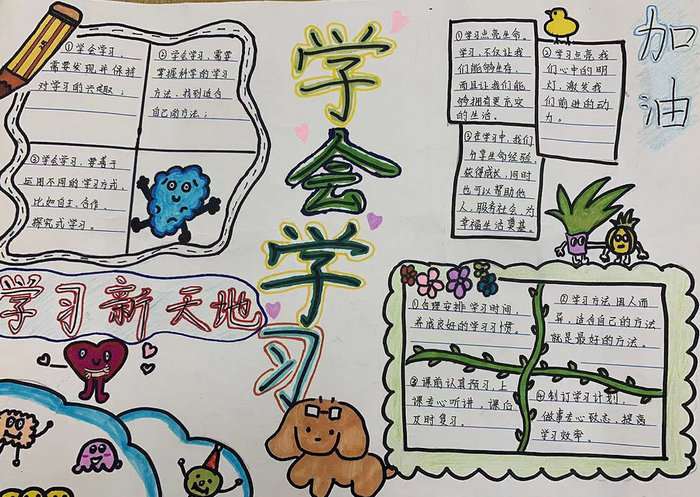 学会学习
加油
①学会学习，
需要发现并保持
对学习的兴趣；
②学会学习，需要
掌握科学的学习
方法，找到适合
自己的方法；
③学会学习，要善于
运用不同的学习方式，
比如自主、合作、
探究式学习。
①学习点亮生命。
学习，不仅让我
们能够生存，
而且让我们能
够拥有更充实
的生活。
②学习点亮我
们心中的明
灯，激发我
们前进的动
力。
③在学习中，我们
分享生命经验，
获得成长，同时
也可以帮助他
人，服务社会，为
幸福生活奠基
学习新天地
①合理安排学习时间，
养成良好的学习习惯。
②学习方法因人而
异，适合自己的方法
就是最好的方法。
③课前认真预习，上
课专心听讲，课后
及时复习。
④制订学习计划，
做事专心致志，提高
学习效率。